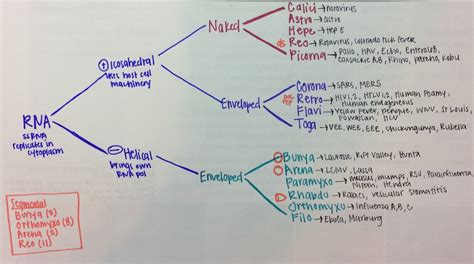 Calici → norovirus
Astro → astro
Naked
Hepe → Hep E
ds Reo → Rotavirus, Colorado tick fever
Picorna → Polio, HAV, Echo, Enterovirus,
coxsackie A,B, Rhino, parecho, Kobu
+ Icosahedral
uses host cell
machinery
Corona → SARS, MERS
Retro → HIV1,2, HTLV1,2, Human Foamy,
Human endogenous
Enveloped
Flavi → Yellow Fever, Dengue, WNV, St Louis,
HCV
Toga → VEE, WEE, EEE, chikungunya, Rubella
RNA
ssRNA
replicates in
cytoplasm
- Helical
brings own
RNA pol
Bunya → Lacrosse, Rift Valley, Hanta
Arena → LCMV, Lassa
Paramyxo → measles, mumps, RSV, Parainfluenza,
Nipah, Hendra
Enveloped
Rhabdo → Rabies, vesicular stomatitis
Orthomyxo → Influenza A,B,C
Filo → Ebola, Marburg
Segmented
Bunya (3)
Orthomyxo (8)
Arena (2)
Reo (11)